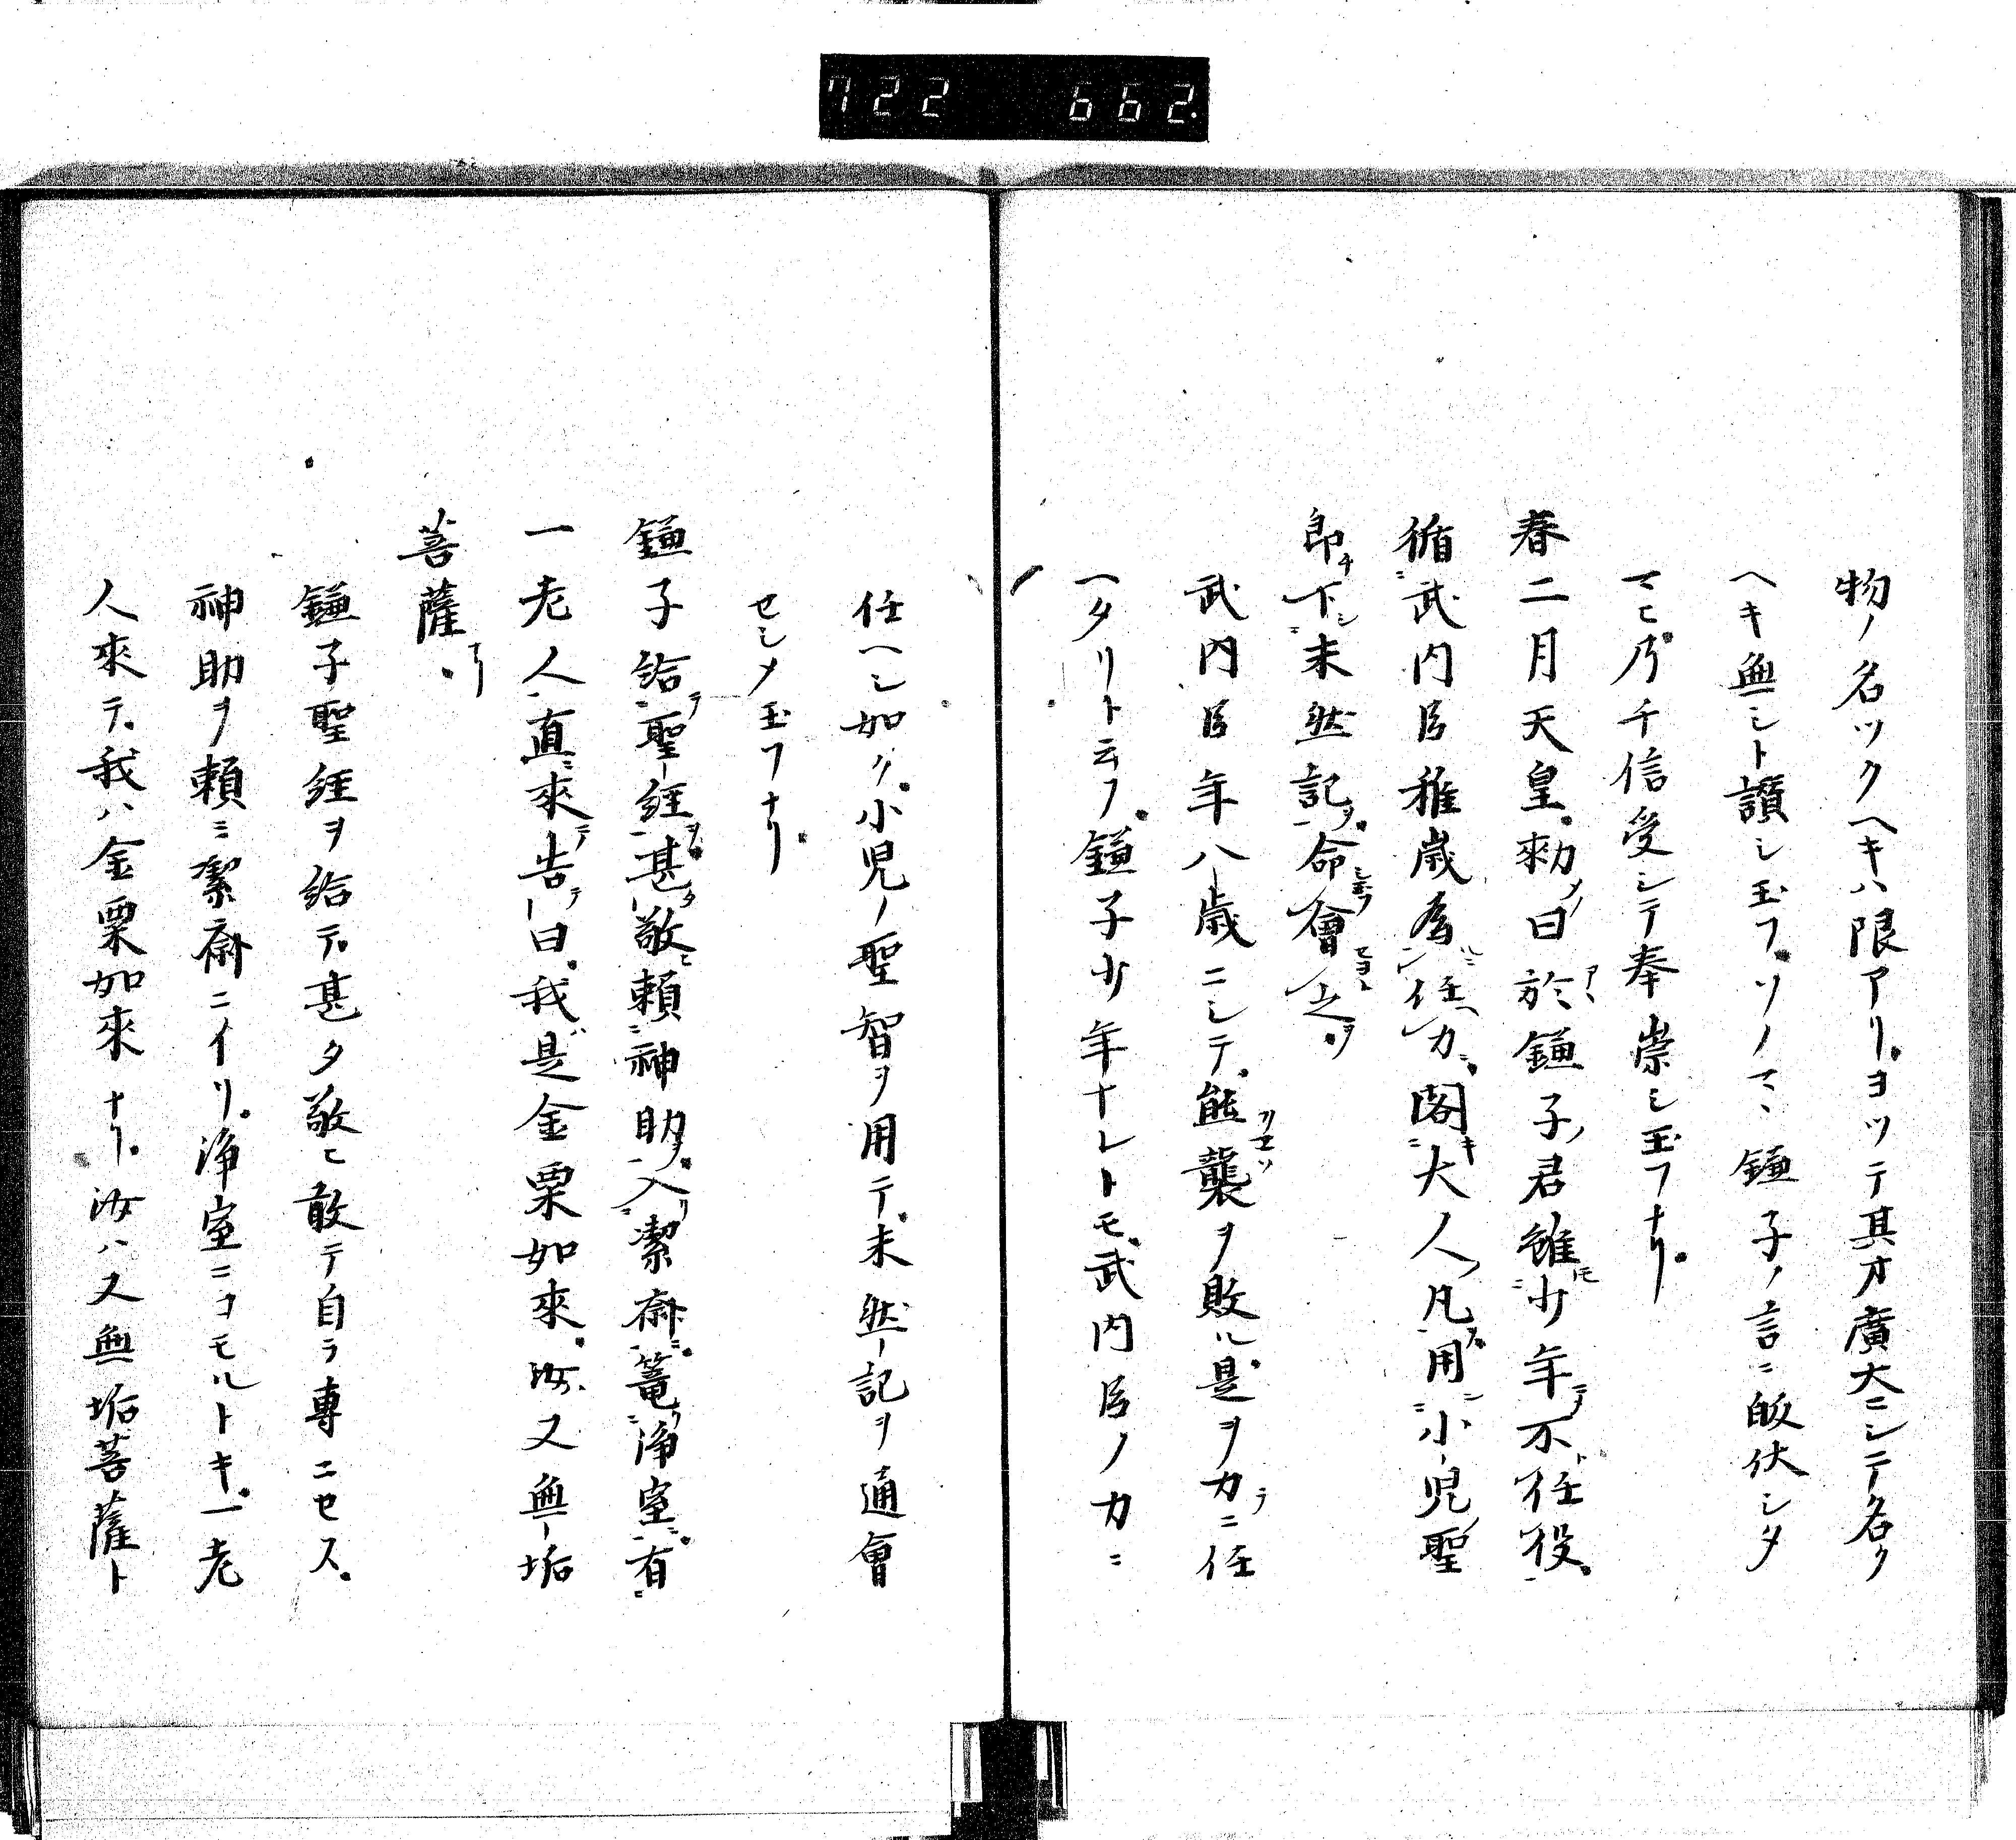 722 662.
物ノ名ツクヘキハ限アリ。ヨツテ其才廣大ニシテ名ク
ヘキ無シト讃シ玉フ。ソノマヽ鎌子ノ言ニ皈伏シタ
マヒ。乃チ信受シテ奉崇シ玉フナリ。
春二月天皇。勅曰於鎌子君雖少年不任役。
循武内臣稚歳為任力。閣大人凡用小児聖
即下未然記。命會之。
武内臣年八歳ニシテ。熊襲ヲ敗ル是ヲ力ニ任
ヘタリト云フ。鎌子少年ナレトモ。武内臣ノ力ニ
任ヘシ如ク。小児ノ聖智ヲ用テ。未然ノ記ヲ通會
セシメ玉フナリ。
鎌子給聖経甚敬賴神助。入潔斎。篭浄室。有
一老人直來告曰。我是金粟如來。汝又無垢
菩薩。
鎌子聖経ヲ給テ。甚タ敬ヒ敢テ自ラ專ニセス。
神助ヲ賴ミ潔斎ニイリ。浄室ニコモルトキ。一老
人來テ。我ハ金粟如來ナリ。汝ハ又無垢菩薩ト